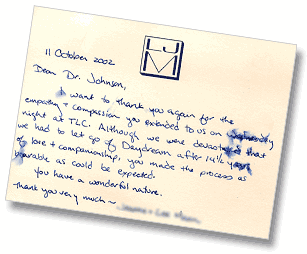 LVM
11 October 2002
Dear Dr. Johnson,
I want to thank you again for the
empathy + compassion you extended to us on
night at TLC. Although we were devastated that
we had to let go of Daydream after 14½ years
of love + companionship, you made the process as
bearable as could be expected.
You have a wonderful nature.
Thank you very much ~